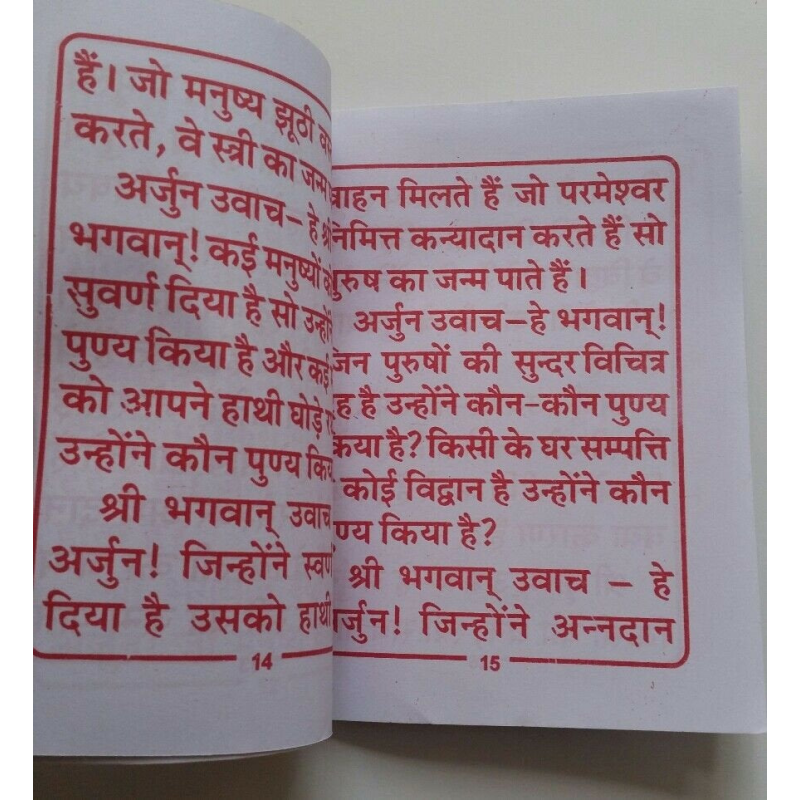 हैं। जो मनुष्य झूठी
करते, वे स्त्री का जन्म
अर्जुन उवाच– हे श्री
भगवान्! कई मनुष्यों को
सुवर्ण दिया है सो उन्होंने
पुण्य किया है और कई
को आपने हाथी घोड़े
उन्होंने कौन पुण्य
श्री भगवान् उवाच
अर्जुन! जिन्होंने स्वर्ण
दिया है उसको हाथी
14
वाहन मिलते हैं जो परमेश्वर
निमित्त कन्यादान करते हैं सो
पुरुष का जन्म पाते हैं।
अर्जुन उवाच–हे भगवान्!
जिन पुरुषों की सुन्दर विचित्र
है उन्होंने कौन-कौन पुण्य
किया है? किसी के घर सम्पत्ति
कोई विद्वान है उन्होंने कौन
पुण्य किया है?
श्री भगवान् उवाच – हे
अर्जुन! जिन्होंने अन्नदान
15